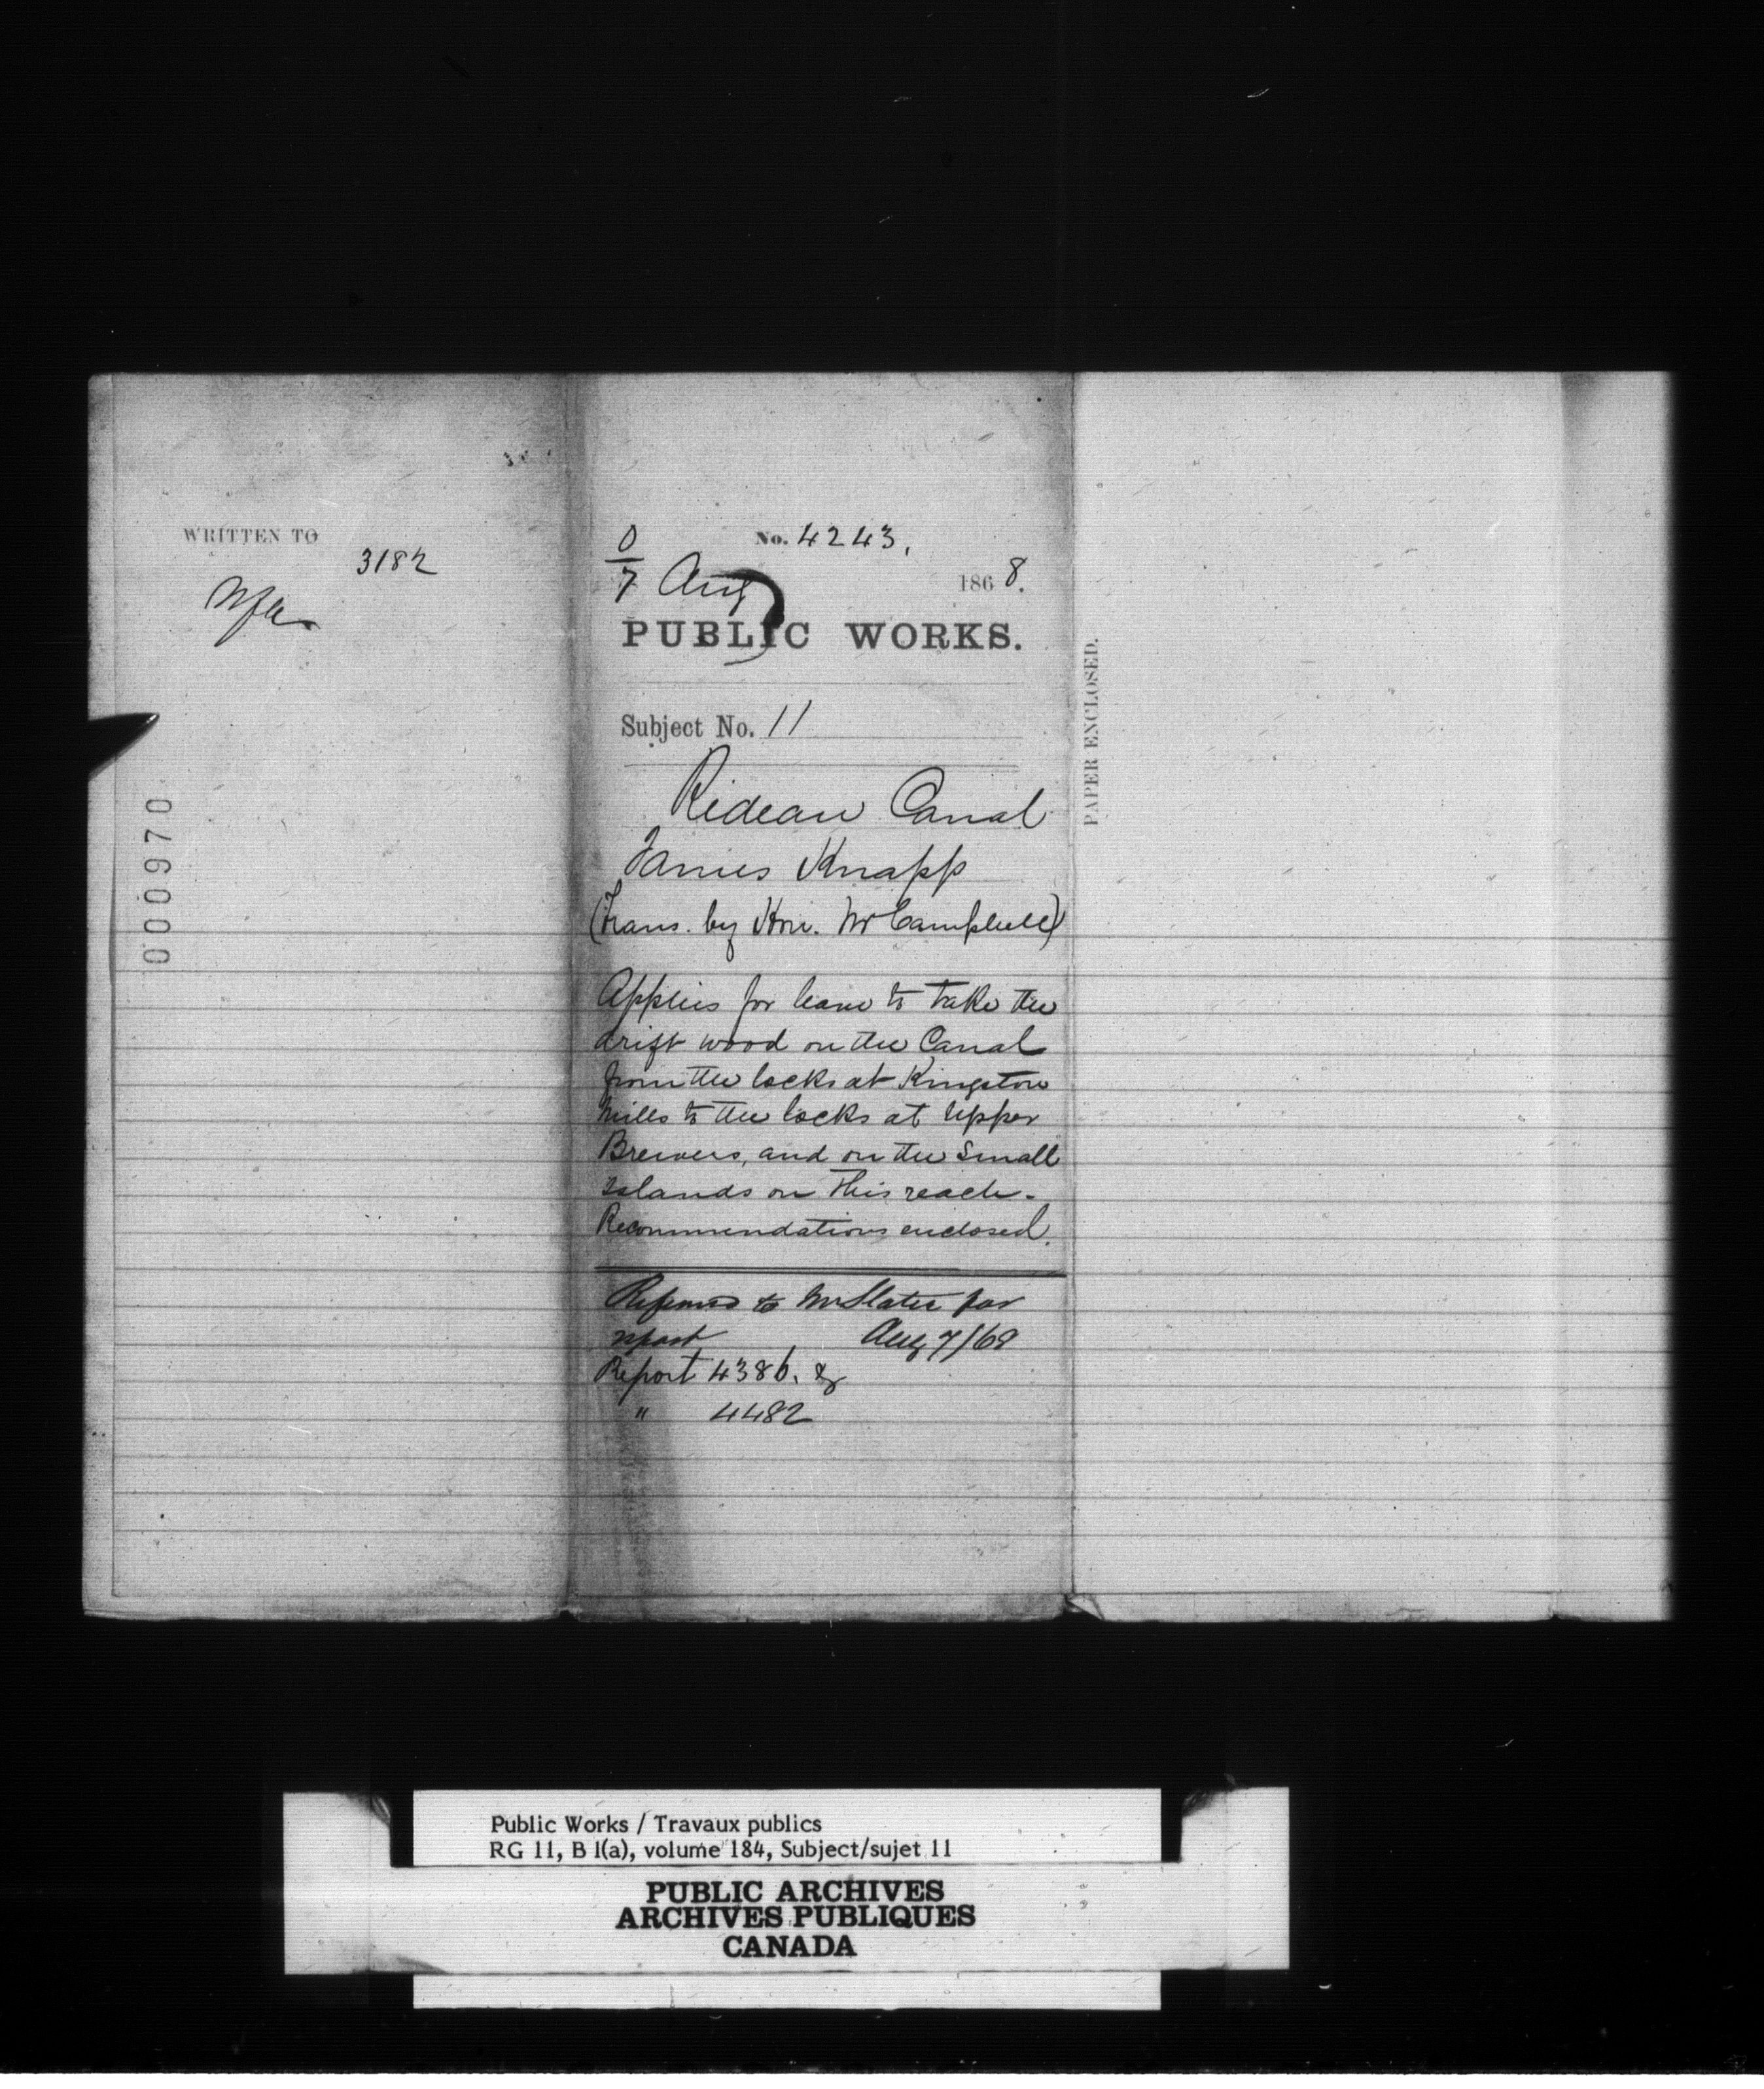 WRITTEN TO
3182
000970
0/7 Aug
No. 4243.
1868.
PUBLIC WORKS.
Subject No. 11
Rideau Canal
James Knapp
(Trans. by Hon. Mr Campbell)
Applies for leave to take the
drift wood on the Canal
from the locks at Kingston
Mills to the locks at Upper
Brewers, and on the Small
Islands on this reach.
Recommendations enclosed.
Referred to Mr Slater for
report Aug 7/68
Report 4386. &
" 4482
PAPER ENCLOSED.
Public Works / Travaux publics
RG 11, B 1(a), volume 184, Subject/sujet 11
PUBLIC ARCHIVES
ARCHIVES PUBLIQUES
CANADA